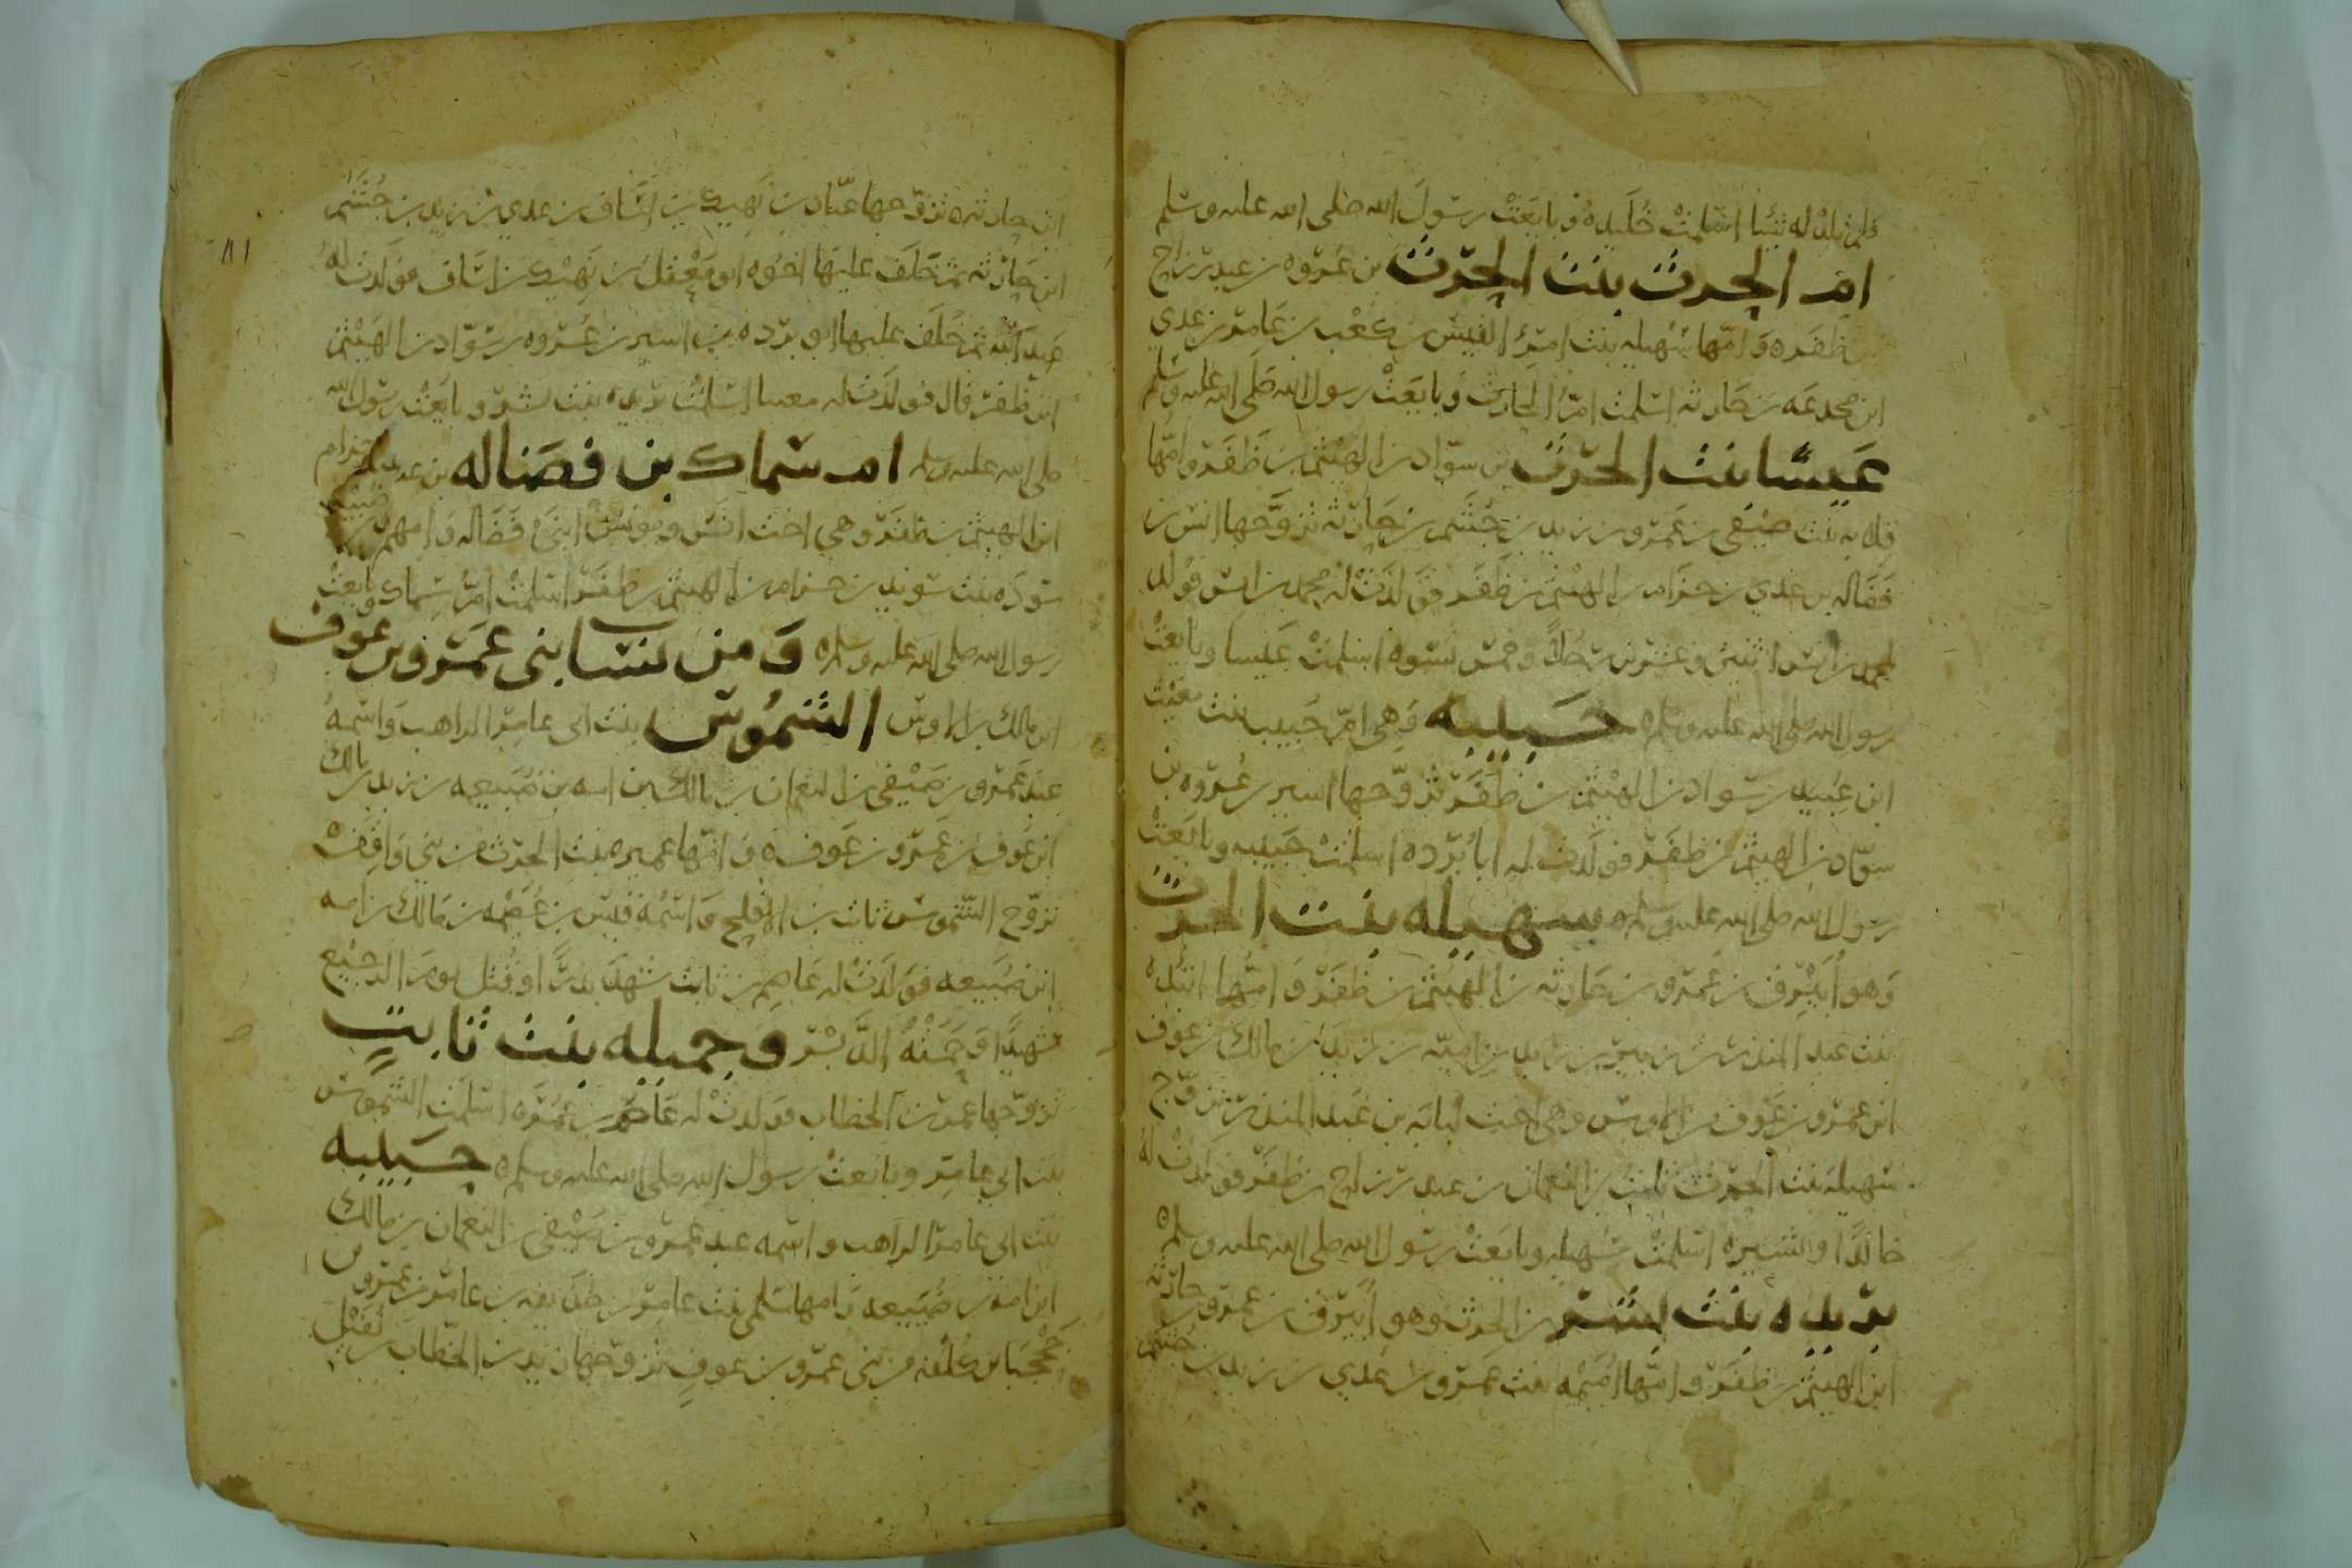 فلم تلد له شيئا اسلمت خليده وبايعت رسول الله صلى الله عليه وسلم
ام الحرث بنت الحرث بن عروه بن عبد رزاح
بن ظفره وامها سهيله بنت امرئ القيس بن كعب بن عامر بن عدي
ابن مجدعه بن حارثه اسلمت ام الحارث وبايعت رسول الله صلى الله عليه وسلم
عميسا بنت الحرث بن سواد بن الهيثم بن ظفر وامها
قلابه بنت صيفي بن عمرو بن زيد بن جشم بن حارثه تزوجها انس بن
فضاله بن عدي بن حزام بن الهيثم بن ظفر فولدت له محمد بن انس فولد
لمحمد بن انس اثنين وعشرين رجلا وخمس نسوه اسلمت عميسا وبايعت
رسول الله صلى الله عليه وسلم حبيبه وهي ام حبيب بنت معتب
ابن عبيد بن سواد بن الهيثم بن ظفر تزوجها اسير بن عروه بن
سواد بن الهيثم بن ظفر فولدت له ابا برده اسلمت حبيبه وبايعت
رسول الله صلى الله عليه وسلم سهيله بنت الحرث
وهو أبيرق بن عمرو بن حارثه بن الهيثم بن ظفر وامها اثيله
بنت عبد المنذر بن زنبر بن زيد بن اميه بن زيد بن مالك بن عوف
ابن عمرو بن عوف بن الاوس وهي اخت لبابه بن عبد المنذر تزوج
سهيله بنت الحرث ثابت بن النعمان بن عبد رزاح بن ظفر فولدت له
خالدا والشيره اسلمت سهيله وبايعت رسول الله صلى الله عليه وسلم
بريده بنت بشر بن الحرث وهو أبيرق بن عمرو بن حارثه
ابن الهيثم بن ظفر وامها اميمه بنت عمرو بن عدي بن زيد بن جشم
ابن حارثه تزوجها عباد بن نهيك بن اساف بن عدي بن زيد بن جشم
ابن حارثه ثم خلف عليها اخوه ابو معقل بن نهيك بن اساف فولدت له
عبد الله ثم خلف عليها ابو برده بن اسير بن عروه بن سواد بن الهيثم
ابن ظفر قال فولدت له معتبا اسلمت بريده بنت بشر وبايعت رسول الله
صلى الله عليه وسلم ام سماك بن فضاله بن عدي بن حزام
ابن الهيثم بن ظفر وهي اخت انس ومونس ابني فضاله وامهم
سوده بنت سويد بن حزام بن الهيثم بن ظفر اسلمت ام سماك وبايعت
رسول الله صلى الله عليه وسلم ومن نسا بني عمرو بن عوف
ابن مالك بن الاوس الشموس بنت ابي عامر الراهب واسمه
عبد عمرو بن صيفي بن النعمان بن مالك بن امه بن ضبيعه بن زيد بن مالك
ابن عوف بن عمرو بن عوف وامها عميره بنت الحرث من بني واقف
تزوج الشموس ثابت بن الاقلح واسمه قيس بن عصمه بن مالك بن امه
ابن ضبيعه فولدت له عاصم بن ثابت شهد بدرا وقتل يوم الرجيع
شهيدا وحمته الدبر وجميله بنت ثابت
تزوجها عمر بن الخطاب فولدت له عاصم بن عمره اسلمت الشموس
بنت ابي عامر وبايعت رسول الله صلى الله عليه وسلم حبيبه
بنت ابي عامر الراهب واسمه عبد عمرو بن صيفي بن النعمان بن مالك
ابن امه بن ضبيعه وامها سلمى بنت عامر بن حذيفه بن عامر بن عمرو بن
جحجبا بن كلفه من بني عمرو بن عوف تزوجها زيد بن الخطاب بن نفيل